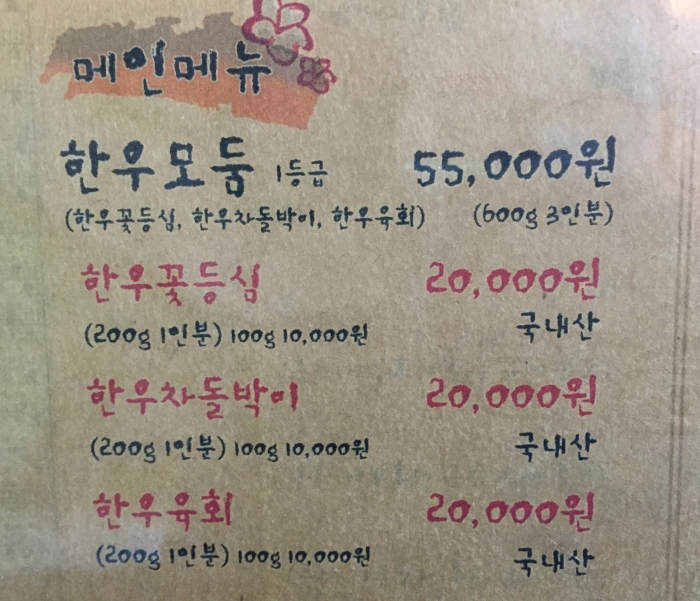 메인메뉴
한우모둠 1등급 55,000원
(한우꽃등심, 한우차돌박이, 한우육회) (600g 3인분)
한우꽃등심 20,000원
(200g 1인분) 100g 10,000원 국내산
한우차돌박이 20,000원
(200g 1인분) 100g 10,000원 국내산
한우육회 20,000원
(200g 1인분) 100g 10,000원 국내산